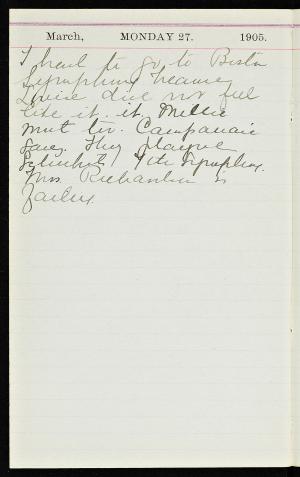 March, MONDAY 27. 1905.
I had to go to Boston
Symphony because
Louise did not feel
like it. it. Millie
went too. Campanari
sang. They played
Schubert's 7th Symphony.
Mrs Richardson is